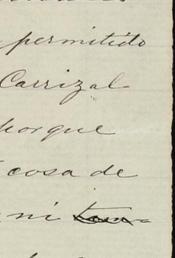 permitido
Carrizal
porque
cosa de
ni